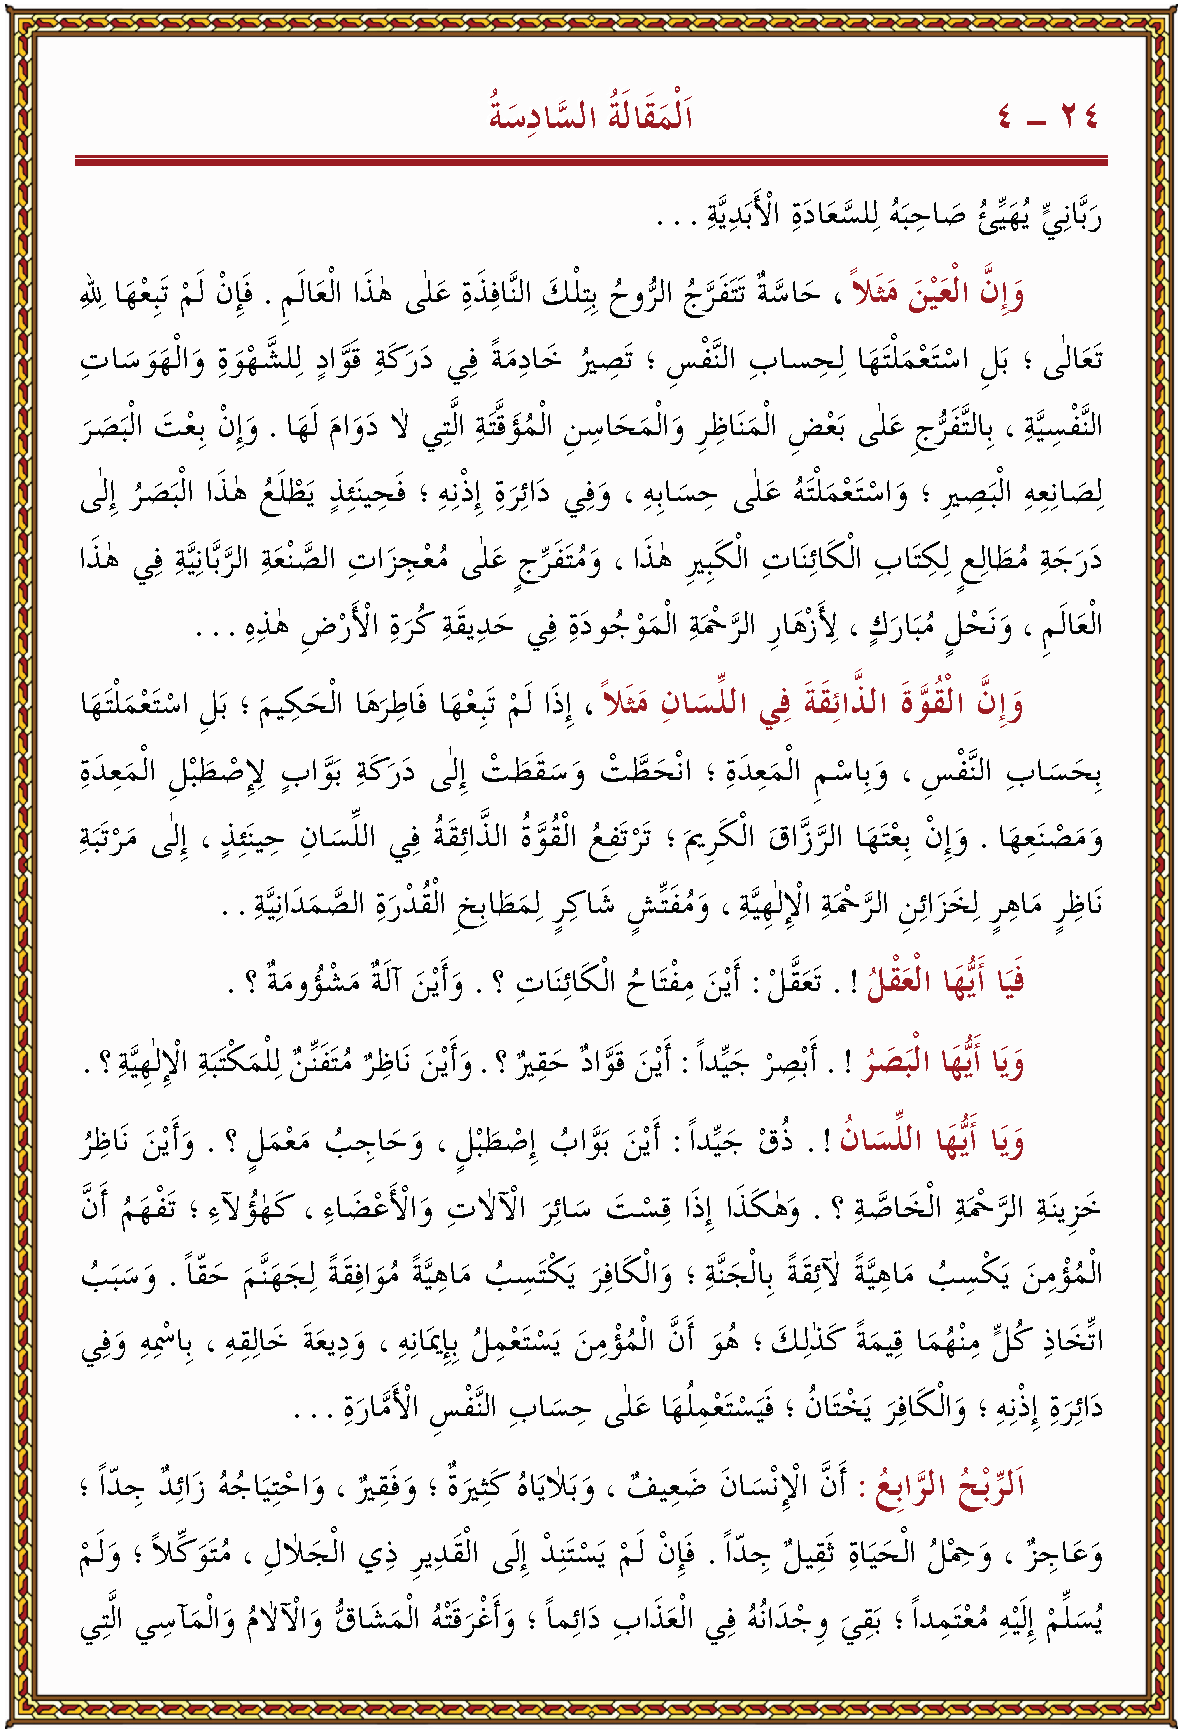 ٢٤ – ٤ اَلْمَقَالَةُ السَّادِسَةُ
رَبَّانِيٍّ يُهَيِّئُ صَاحِبَهُ لِلسَّعَادَةِ الْأَبَدِيَّةِ . . .
وَإِنَّ الْعَيْنَ مَثَلاً ، حَاسَّةٌ تَتَفَرَّجُ الرُّوحُ بِتِلْكَ النَّافِذَةِ عَلٰى هٰذَا الْعَالَمِ . فَإِنْ لَمْ تَبِعْهَا لِلّٰهِ
تَعَالٰى ؛ بَلِ اسْتَعْمَلْتَهَا لِحِسابِ النَّفْسِ ؛ تَصِيرُ خَادِمَةً فِي دَرَكَةِ قَوَّادٍ لِلشَّهْوَةِ وَالْهَوَسَاتِ
النَّفْسِيَّةِ ، بِالتَّفَرُّجِ عَلٰى بَعْضِ الْمَنَاظِرِ وَالْمَحَاسِنِ الْمُؤَقَّتَةِ الَّتِي لاٰ دَوَامَ لَهَا . وَإِنْ بِعْتَ الْبَصَرَ
لِصَانِعِهِ الْبَصِيرِ ؛ وَاسْتَعْمَلْتَهُ عَلٰى حِسَابِهِ ، وَفِي دَائِرَةِ إِذْنِهِ ؛ فَحِينَئِذٍ يَطْلَعُ هٰذَا الْبَصَرُ إِلٰى
دَرَجَةِ مُطَالِعٍ لِكِتَابِ الْكَائِنَاتِ الْكَبِيرِ هٰذَا ، وَمُتَفَرِّجٍ عَلٰى مُعْجِزَاتِ الصَّنْعَةِ الرَّبَّانِيَّةِ فِي هٰذَا
الْعَالَمِ ، وَنَحْلٍ مُبَارَكٍ ، لِأَزْهَارِ الرَّحْمَةِ الْمَوْجُودَةِ فِي حَدِيقَةِ كُرَةِ الْأَرْضِ هٰذِهِ . . .
وَإِنَّ الْقُوَّةَ الذَّائِقَةَ فِي اللِّسَانِ مَثَلاً ، إِذَا لَمْ تَبِعْهَا فَاطِرَهَا الْحَكِيمَ ؛ بَلِ اسْتَعْمَلْتَهَا
بِحَسَابِ النَّفْسِ ، وَبِاسْمِ الْمَعِدَةِ ؛ انْحَطَّتْ وَسَقَطَتْ إِلٰى دَرَكَةِ بَوَّابٍ لِإِصْطَبْلِ الْمَعِدَةِ
وَمَصْنَعِهَا . وَإِنْ بِعْتَهَا الرَّزَّاقَ الْكَرِيمَ ؛ تَرْتَفِعُ الْقُوَّةُ الذَّائِقَةُ فِي اللِّسَانِ حِينَئِذٍ ، إِلٰى مَرْتَبَةِ
نَاظِرٍ مَاهِرٍ لِخَزَائِنِ الرَّحْمَةِ الْإِلٰهِيَّةِ ، وَمُفَتِّشٍ شَاكِرٍ لِمَطَابِخِ الْقُدْرَةِ الصَّمَدَانِيَّةِ . .
فَيَا أَيُّهَا الْعَقْلُ ! . تَعَقَّلْ : أَيْنَ مِفْتَاحُ الْكَائِنَاتِ ؟ . وَأَيْنَ آلَةٌ مَشْؤُومَةٌ ؟ .
وَيَا أَيُّهَا الْبَصَرُ ! . أَبْصِرْ جَيِّداً : أَيْنَ قَوَّادٌ حَقِيرٌ ؟ . وَأَيْنَ نَاظِرٌ مُتَفَنِّنٌ لِلْمَكْتَبَةِ الْإِلٰهِيَّةِ ؟ .
وَيَا أَيُّهَا اللِّسَانُ ! . ذُقْ جَيِّداً : أَيْنَ بَوَّابُ إِصْطَبْلٍ ، وَحَاجِبُ مَعْمَلٍ ؟ . وَأَيْنَ نَاظِرُ
خَزِينَةِ الرَّحْمَةِ الْخَاصَّةِ ؟ . وَهٰكَذَا إِذَا قِسْتَ سَائِرَ الْآلاٰتِ وَالْأَعْضَاءِ ، كَهٰؤُلآءِ ؛ تَفْهَمُ أَنَّ
الْمُؤْمِنَ يَكْسِبُ مَاهِيَّةً لاٰئِقَةً بِالْجَنَّةِ ؛ وَالْكَافِرَ يَكْتَسِبُ مَاهِيَّةً مُوَافِقَةً لِجَهَنَّمَ حَقّاً . وَسَبَبُ
اتِّخَاذِ كُلٍّ مِنْهُمَا قِيمَةً كَذٰلِكَ ؛ هُوَ أَنَّ الْمُؤْمِنَ يَسْتَعْمِلُ بِإِيمَانِهِ ، وَدِيعَةَ خَالِقِهِ ، بِاسْمِهِ وَفِي
دَائِرَةِ إِذْنِهِ ؛ وَالْكَافِرَ يَخْتَانُ ؛ فَيَسْتَعْمِلُهَا عَلٰى حِسَابِ النَّفْسِ الْأَمَّارَةِ . . .
اَلرِّبْحُ الرَّابِعُ : أَنَّ الْإِنْسَانَ ضَعِيفٌ ، وَبَلاٰيَاهُ كَثِيرَةٌ ؛ وَفَقِيرٌ ، وَاحْتِيَاجُهُ زَائِدٌ جِدّاً ؛
وَعَاجِزٌ ، وَحِمْلُ الْحَيَاةِ ثَقِيلٌ جِدّاً . فَإِنْ لَمْ يَسْتَنِدْ إِلَى الْقَدِيرِ ذِي الْجَلاٰلِ ، مُتَوَكِّلاً ؛ وَلَمْ
يُسَلِّمْ إِلَيْهِ مُعْتَمِداً ؛ بَقِيَ وِجْدَانُهُ فِي الْعَذَابِ دَائِماً ؛ وَأَغْرَقَتْهُ الْمَشَاقُّ وَالْآلاٰمُ وَالْمَآسِي الَّتِي